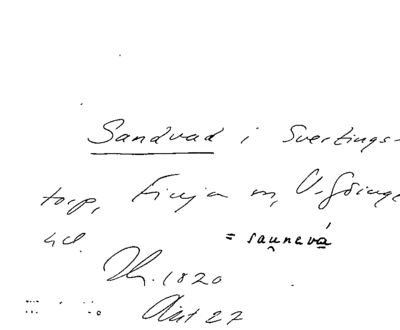 Sandvad i Svertings-
torp, Finja sn, V. Göinge
hd.
= sau̯nevá
Th. 1820
Akt 27